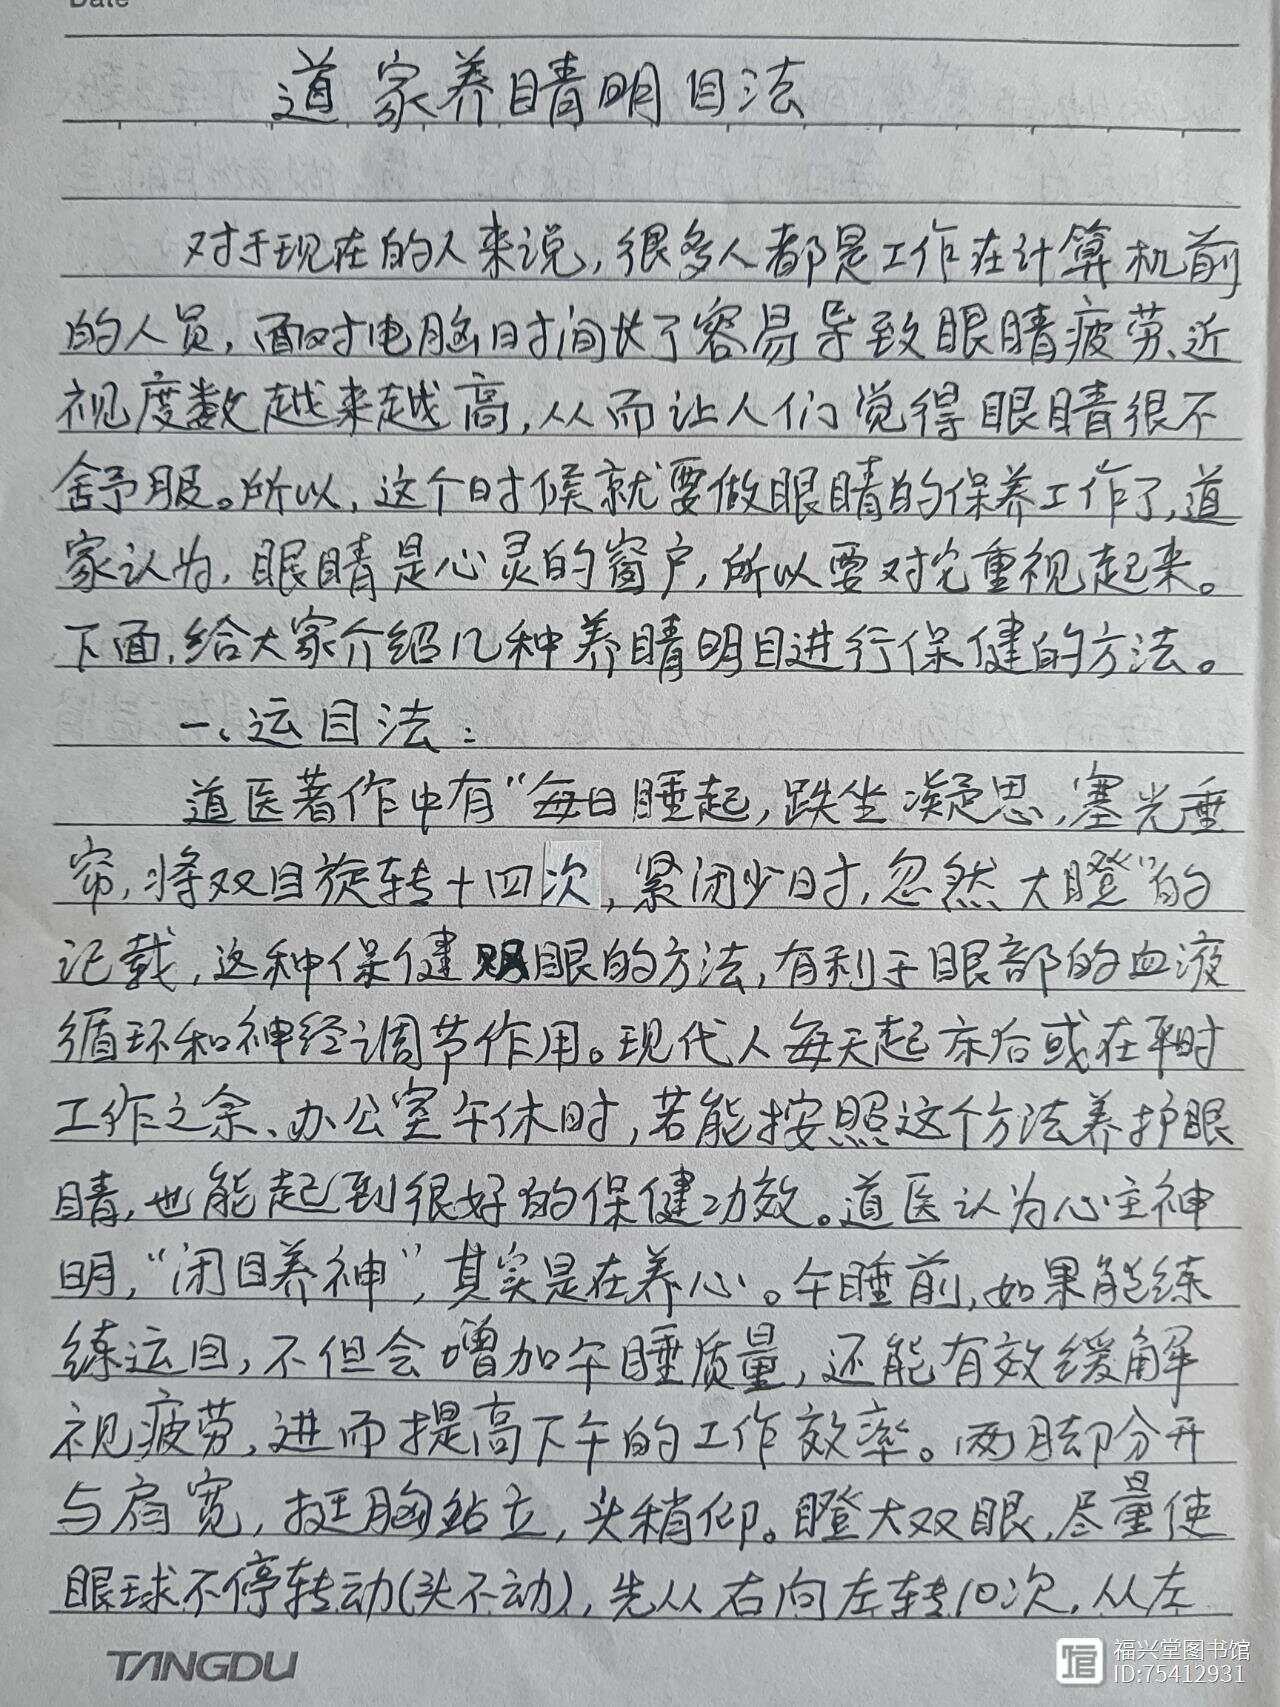 Date
道家养睛明目法
对于现在的人来说,很多人都是工作在计算机前
的人员,面对电脑时间长了容易导致眼睛疲劳、近
视度数越来越高,从而让人们觉得眼睛很不
舒服。所以,这个时候就要做眼睛的保养工作了,道
家认为,眼睛是心灵的窗户,所以要对它重视起来。
下面,给大家介绍几种养睛明目进行保健的方法。
一、运目法:
道医著作中有“每日睡起,趺坐凝思,塞光垂
帘,将双目旋转十四次,紧闭少时,忽然大瞪”的
记载,这种保健明眼的方法,有利于眼部的血液
循环和神经调节作用。现代人每天起床后或在平时
工作之余、办公室午休时,若能按照这个方法养护眼
睛,也能起到很好的保健功效。道医认为心主神
明,“闭目养神”,其实是在养心。午睡前,如果能练
练运目,不但会增加午睡质量,还能有效缓解
视疲劳,进而提高下午的工作效率。两脚分开
与肩宽,挺胸站立,头稍仰。瞪大双眼,尽量使
眼球不停转动(头不动),先从右向左转10次,从左
TANGDU
福兴堂图书馆
ID:75412931